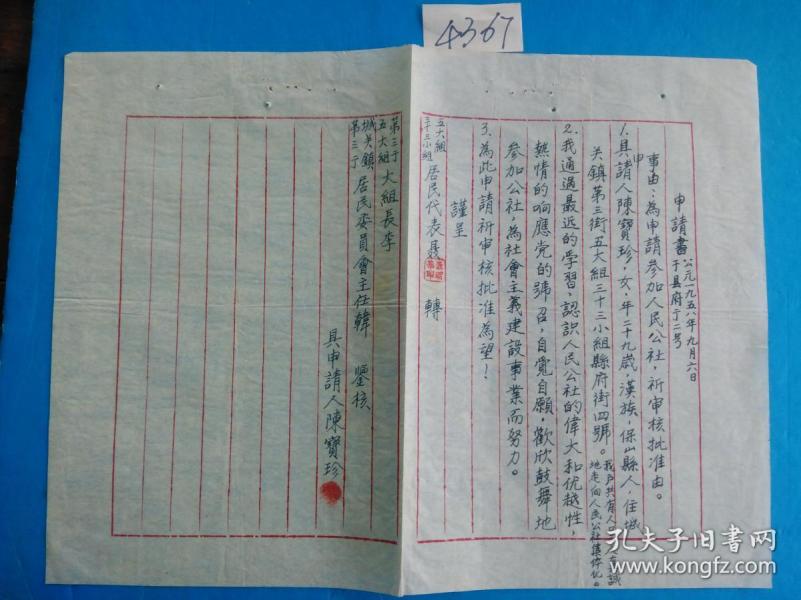 4367
申請書
公元一九五八年九月六日
于县府于二号
事由：為申請參加人民公社，祈审核批准由。
1.具申請人陳寶珍，女，年二十九歲，漢族，保山縣人，住城
关鎮第三街五大組三十三小組縣府街四號。
我戶共有人口
地走向人民公社集体化
2.我通過最近的學習，認識人民公社的偉大和优越性，
熱情的响應党的號召，自覺自願，歡欣鼓舞地
參加公社，為社會主義建設事業而努力。
3.為此申請祈审核批准為望！
謹呈
五大組
三十三小組
居民代表聂 轉
第三于
五大組
大組長李
城关鎮
第三于
居民委員會主任韓 鑒核
具申請人陳寶珍
孔夫子旧书网
www.kongfz.com